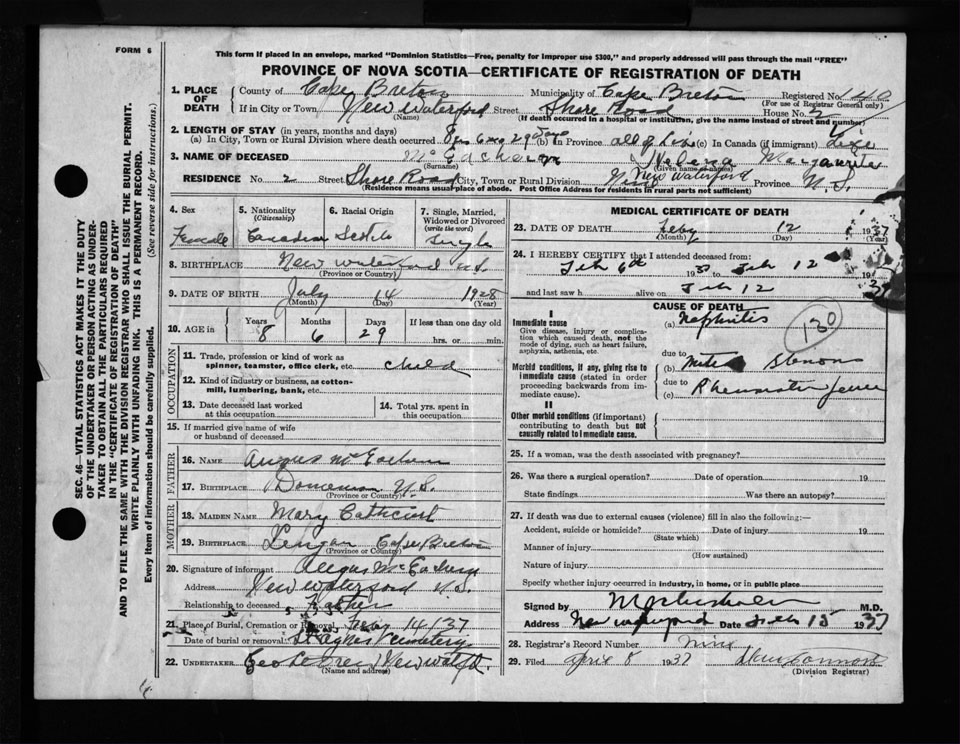 FORM 6
This form if placed in an envelope, marked "Dominion Statistics—Free, penalty for improper use $300," and properly addressed will pass through the mail "FREE"
PROVINCE OF NOVA SCOTIA—CERTIFICATE OF REGISTRATION OF DEATH
SEC. 46—VITAL STATISTICS ACT MAKES IT THE DUTY
OF THE UNDERTAKER OR PERSON ACTING AS UNDER-
TAKER TO OBTAIN ALL THE PARTICULARS REQUIRED
IN THE "CERTIFICATE OF REGISTRATION OF DEATH"
AND TO FILE THE SAME WITH THE DIVISION REGISTRAR WHO SHALL ISSUE THE BURIAL PERMIT.
WRITE PLAINLY WITH UNFADING INK. THIS IS A PERMANENT RECORD.
Every item of information should be carefully supplied. (See reverse side for instructions.)
1. PLACE OF DEATH County of Cape Breton Municipality of Cape Breton Registered No. 140
(For use of Registrar General only)
If in City or Town New Waterford Street Shore Road House No. 2
(Name) (If death occurred in a hospital or institution, give the name instead of street and number)
2. LENGTH OF STAY (in years, months and days)
(a) In City, Town or Rural Division where death occurred 8 6 29 (b) In Province all of Life (c) In Canada (if immigrant) Life
3. NAME OF DECEASED McEachern Helena
(Surname) (Given name or names)
RESIDENCE No. 2 Street Shore Road City, Town or Rural Division New Waterford Province N.S.
(Residence means usual place of abode. Post Office Address for residents in rural parts not sufficient)
4. Sex 5. Nationality 6. Racial Origin 7. Single, Married,
(Citizenship) Widowed or Divorced
(write the word)
Female Canadian Scotch Single
8. BIRTHPLACE New Waterford N.S.
(Province or Country)
9. DATE OF BIRTH July 14 1928
(Month) (Day) (Year)
10. AGE in Years Months Days If less than one day old
8 6 29 hrs. or min.
OCCUPATION
11. Trade, profession or kind of work as
spinner, teamster, office clerk, etc. child
12. Kind of industry or business, as cotton-
mill, lumbering, bank, etc.
13. Date deceased last worked 14. Total yrs. spent in
at this occupation this occupation
15. If married give name of wife
or husband of deceased
FATHER
16. NAME Angus McEachern
17. BIRTHPLACE N.S.
(Province or Country)
MOTHER
18. MAIDEN NAME Mary
19. BIRTHPLACE Lingan Cape Breton
(Province or Country)
20. Signature of informant Angus McEachern
Address New Waterford N.S.
Relationship to deceased Father
21. Place of Burial, Cremation or Removal 14/37
Date of burial or removal St Agnes Cemetery
22. UNDERTAKER Geo
(Name and address)
MEDICAL CERTIFICATE OF DEATH
23. DATE OF DEATH Feby 12 1937
(Month) (Day) (Year)
24. I HEREBY CERTIFY that I attended deceased from:
Feb 6th 193 Feb 12 19
and last saw h alive on Feb 12 37
CAUSE OF DEATH
I
Immediate cause
Give disease, injury or complica-
tion which caused death, not the
mode of dying, such as heart failure,
asphyxia, asthenia, etc.
(a) Nephritis 130
due to
Morbid conditions, if any, giving rise to
immediate cause (stated in order
proceeding backwards from im-
mediate cause)
(b)
due to
(c)
II
Other morbid conditions (if important)
contributing to death but not
causally related to immediate cause.
25. If a woman, was the death associated with pregnancy?
26. Was there a surgical operation? Date of operation 19
State findings Was there an autopsy?
27. If death was due to external causes (violence) fill in also the following:—
Accident, suicide or homicide? Date of injury 19
(State which)
Manner of injury
(How sustained)
Nature of injury
Specify whether injury occurred in industry, in home, or in public place
Signed by M.D.
Address New Waterford Date Feb 15 1937
28. Registrar's Record Number Nine
29. Filed April 8 1937
(Division Registrar)